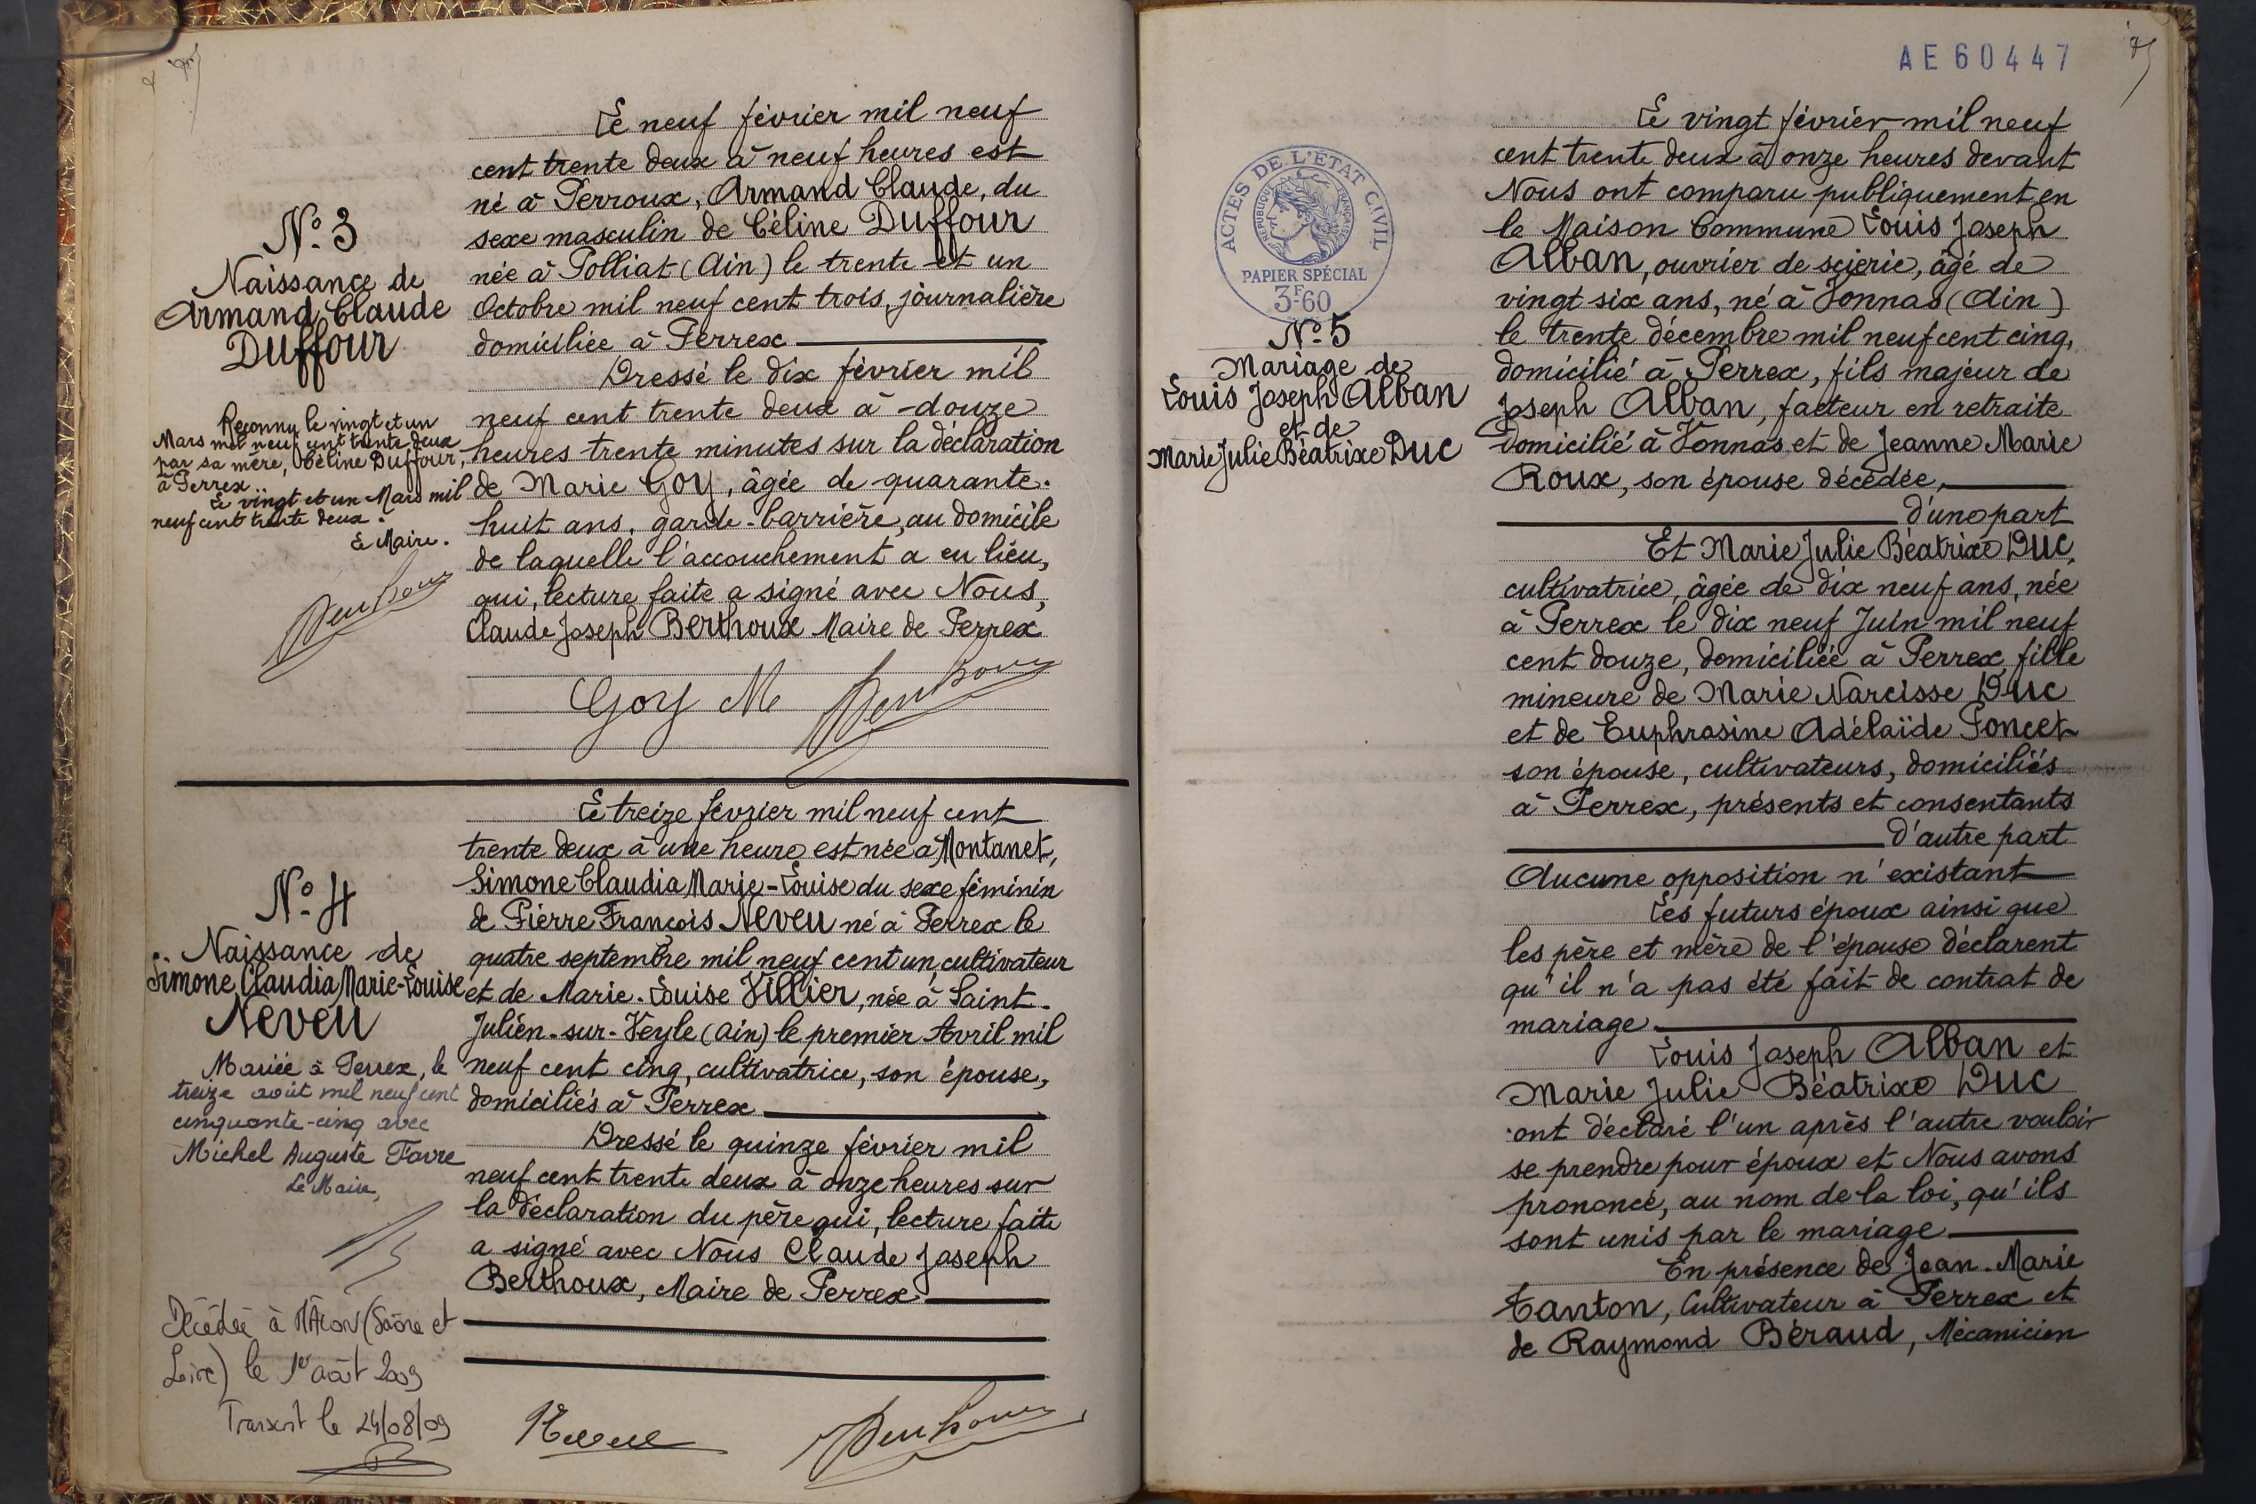 Le neuf février mil neuf
cent trente deux à neuf heures est
né à Perroux, Armand Claude, du
sexe masculin de Céline Duffour
née à Polliat (Ain) le trente et un
Octobre mil neuf cent trois, journalière
domiciliée à Perrex
Dressé le dix février mil
neuf cent trente deux à douze
heures trente minutes sur la déclaration
de Marie Goy, âgée de quarante-
huit ans, garde-barrière, au domicile
de laquelle l'accouchement a eu lieu,
qui, lecture faite a signé avec Nous,
Claude Joseph Berthoux Maire de Perrex
Goy M Berthoux
N° 3
Naissance de
Armand Claude
Duffour
Reconnu le vingt et un
Mars mil neuf cent trente deux
par sa mère, Céline Duffour,
à Perrex.
Le vingt et un Mars mil
neuf cent trente deux.
Le Maire.
Berthoux
Le treize février mil neuf cent
trente deux à une heure est née à Montanet,
Simone Claudia Marie-Louise du sexe féminin
de Pierre François Neveu né à Perrex le
quatre septembre mil neuf cent un, cultivateur
et de Marie-Louise Villier, née à Saint-
Julien-sur-Veyle (Ain) le premier Avril mil
neuf cent cinq, cultivatrice, son épouse,
domiciliés à Perrex
Dressé le quinze février mil
neuf cent trente deux à onze heures sur
la déclaration du père qui, lecture faite
a signé avec Nous Claude Joseph
Berthoux, Maire de Perrex
Neveu Berthoux
N° 4
Naissance de
Simone Claudia Marie-Louise
Neveu
Mariée à Perrex, le
treize août mil neuf cent
cinquante-cinq avec
Michel Auguste Favre
Le Maire,
Décédée à MÂCON (Saône et
Loire) le 1er août 2009
Transcrit le 24/08/09
AE 60447
ACTES DE L'ÉTAT CIVIL
RÉPUBLIQUE FRANÇAISE
PAPIER SPÉCIAL
3F-60
N° 5
Mariage de
Louis Joseph Alban
et de
Marie Julie Béatrixe Duc
Le vingt février mil neuf
cent trente deux à onze heures devant
Nous ont comparu publiquement en
la Maison Commune Louis Joseph
Alban, ouvrier de scierie, âgé de
vingt six ans, né à Vonnas (Ain)
le trente décembre mil neuf cent cinq,
domicilié à Perrex, fils majeur de
Joseph Alban, facteur en retraite
domicilié à Vonnas et de Jeanne Marie
Roux, son épouse décédée,
d'une part
Et Marie Julie Béatrixe Duc,
cultivatrice, âgée de dix neuf ans, née
à Perrex le dix neuf Juin mil neuf
cent douze, domiciliée à Perrex, fille
mineure de Marie Narcisse Duc
et de Euphrasine Adélaïde Poncet
son épouse, cultivateurs, domiciliés
à Perrex, présents et consentants
d'autre part
Aucune opposition n'existant
Les futurs époux ainsi que
les père et mère de l'épouse déclarent
qu'il n'a pas été fait de contrat de
mariage
Louis Joseph Alban et
Marie Julie Béatrixe Duc
ont déclaré l'un après l'autre vouloir
se prendre pour époux et Nous avons
prononcé, au nom de la loi, qu'ils
sont unis par le mariage
En présence de Jean-Marie
Tanton, Cultivateur à Perrex et
de Raymond Béraud, Mécanicien